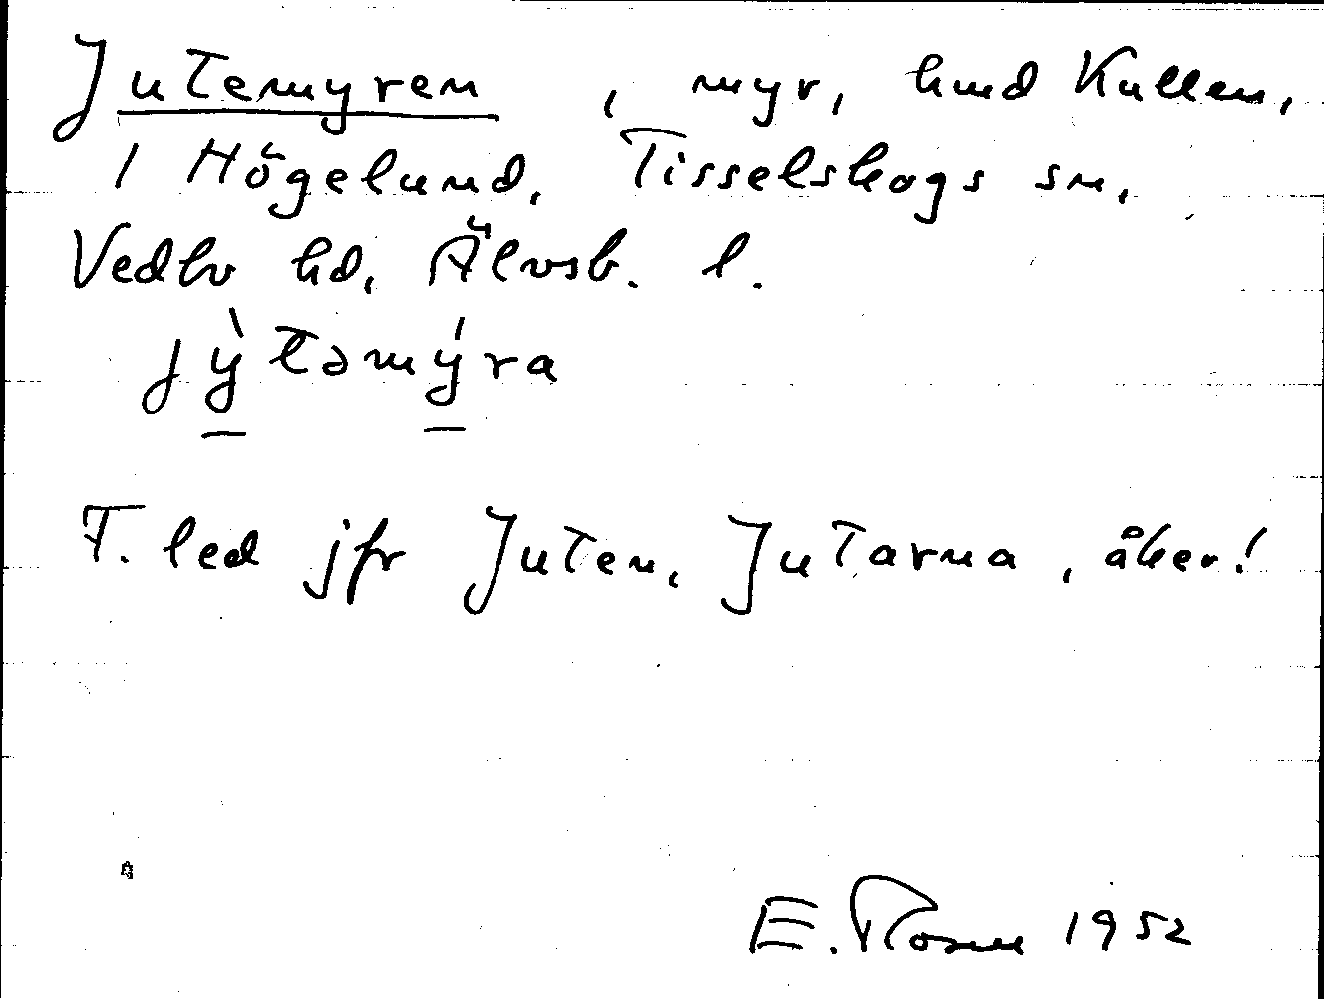 Jutemyren, myr, hmd Kullen,
1 Högelund, Tisselskogs sn,
Vedbo hd, Älvsb. l.
jỳtəmýra
F. led jfr Juten, Jutarna, åker!
E. Rosne 1952